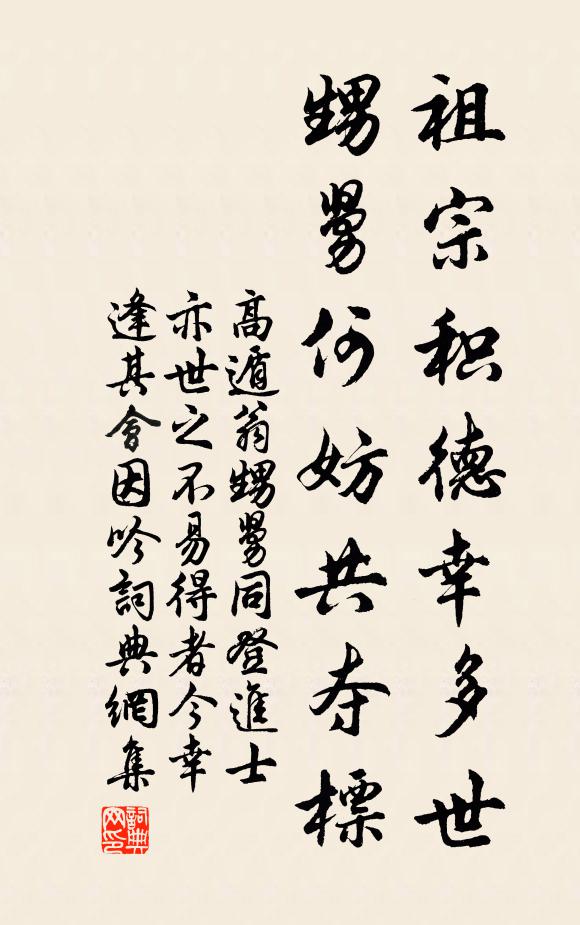 祖宗积德幸多世
甥舅何妨共夺標
高遁翁甥舅同登進士
亦世之不易得者今幸
逢其會因吟詞典網集
詞典
网印